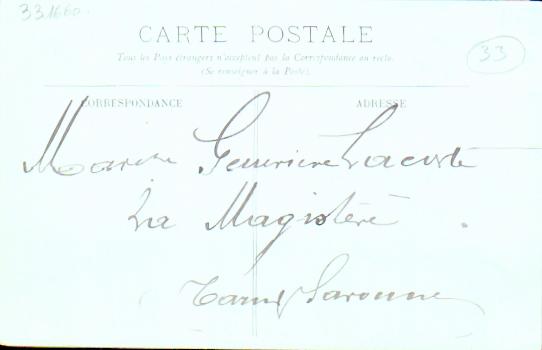 33.1660.
CARTE POSTALE
33
Tous les Pays étrangers n'acceptent pas la Correspondance au recto.
(Se renseigner à la Poste).
CORRESPONDANCE ADRESSE
Geneviève Lacoste
La Magistère
Tarn & Garonne